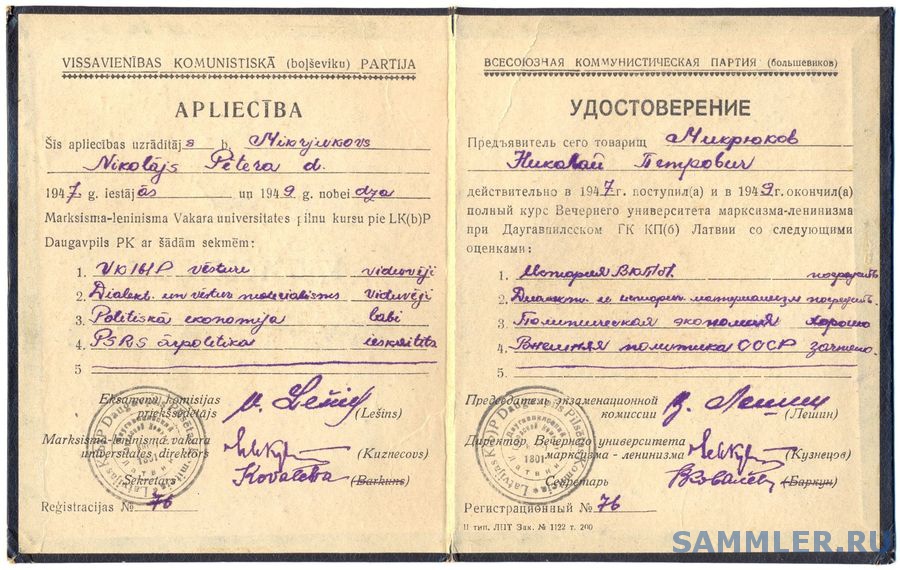 VISSAVIENĪBAS KOMUNISTISKĀ (boļševiku) PARTIJA
APLIECĪBA
Šis apliecības uzrādītājs b. Mikrjukovs
Nikolājs Pētera d.
1947 g. iestājās un 1949 g. nobeidza
Marksisma-ļeninisma Vakara universitates pilnu kursu pie LK(b)P
Daugavpils PK ar šādām sekmēm:
1. VK(b)P vēsture viduvēji
2. Dialekt. un vēstur. materialisms viduvēji
3. Politiskā ekonomija labi
4. PSRS ārpolitika ieskaitīts
5
Eksamenu komisijas
priekšsēdētājs (Lešins)
Marksisma-ļeninisma vakara
universitates direktors (Kuznecovs)
Sekretars (Barkuns)
Reģistrācijas № 76
ВСЕСОЮЗНАЯ КОММУНИСТИЧЕСКАЯ ПАРТИЯ (большевиков)
УДОСТОВЕРЕНИЕ
Предъявитель сего товарищ Микрюков
Николай Петрович
действительно в 1947 г. поступил(а) и в 1949 г. окончил(а)
полный курс Вечернего университета марксизма-ленинизма
при Даугавпилсском ГК КП(б) Латвии со следующими
оценками:
1. История ВКП(б) посредств.
2. Диалект. и историч. материализм посредств.
3. Политическая экономия хорошо
4. Внешняя политика СССР зачтено.
5
Председатель экзаменационной
комиссии Лешин (Лешин)
Директор Вечернего университета
марксизма - ленинизма (Кузнецов)
Секретарь (Баркун)
Регистрационный № 76
II тип. ЛПТ Зак. № 1122 т. 200
SAMMLER.RU